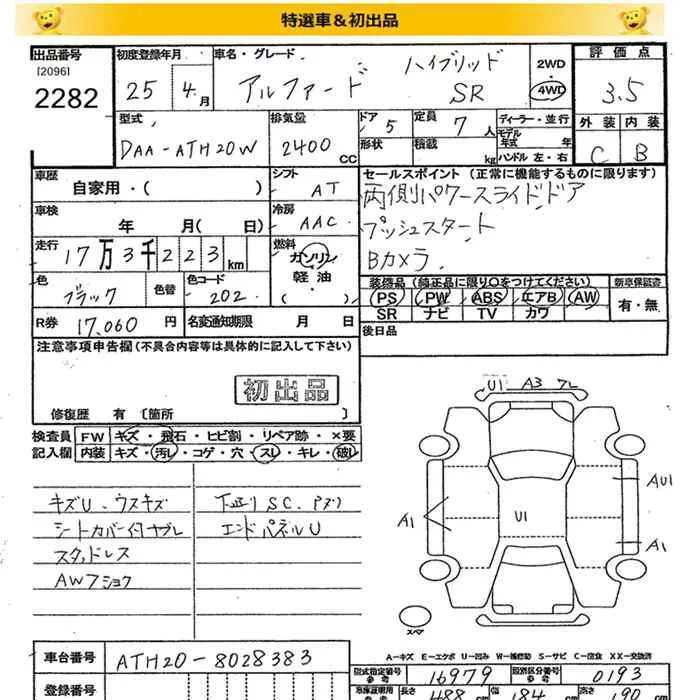 特選車&初出品
出品番号 [2096] 2282
初度登録年月 25 4月
車名・グレード アルファード ハイブリッド SR
2WD・4WD
評価点 3.5
外装 内装
C B
型式 DAA-ATH20W
排気量 2400 CC
ドア 5 定員 7人
形状 積載 kg
ディーラー・並行
モデル年式 年
ハンドル 左・右
車歴 自家用・( )
シフト AT
車検 年 月( 日)
冷房 AAC
走行 17万3千223km
燃料 ガソリン 軽油 ( ・ )
色 ブラック 色替 色コード 202
R券 17,060円 名変通知期限 月 日
セールスポイント (正常に機能するものに限ります)
両側パワースライドドア
プッシュスタート
Bカメラ
装備品 (純正品に限り○をつけてください)
PS PW ABS エアB AW
SR ナビ TV カワ
新車保証書 有・無
後日品
注意事項申告欄(不具合内容等は具体的に記入して下さい)
初出品
修復歴 有 〔箇所 〕
検査員記入欄
FW キズ・飛石・ヒビ割・リペア跡・×要
内装 キズ・汚レ・コゲ・穴・スレ・キレ・破レ
キズU、ウスキズ
スタッドレス
AWフショク
エンドパネルU
U1 A3
A1
U1
AU1
A1
スペア
A-キズ E-エクボ U-凹み W-補修跡 S-サビ C-腐食 XX-交換済
車台番号 ATH20-8028383
登録番号
型式指定番号 参考 16979
類別区分番号 参考 0193
長さ 488 cm 幅 184 cm 高さ 190 cm